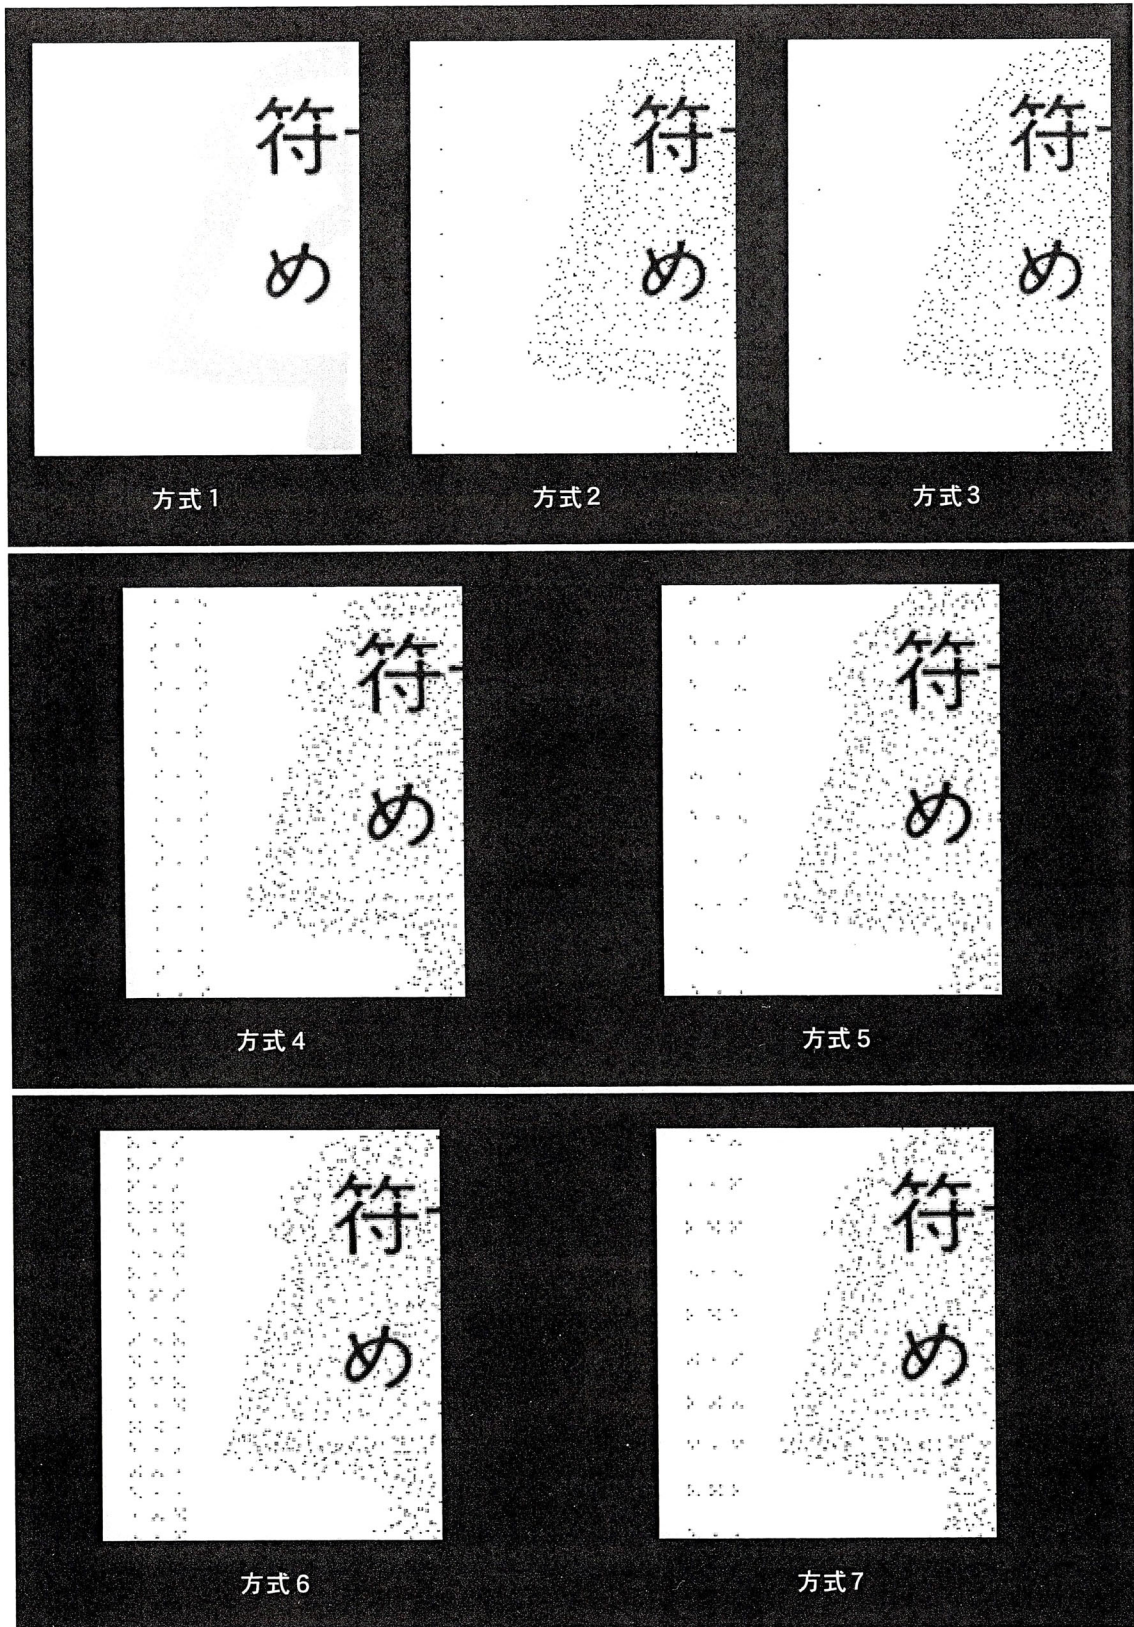 符
め
方式1
符
め
方式2
符
め
方式3
符
め
方式4
符
め
方式5
符
め
方式6
符
め
方式7